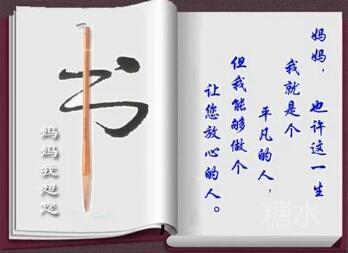 书
妈妈我想您
妈妈，也许这一生
我就是个
平凡的人，
但我能够做个
让您放心的人。
糖水